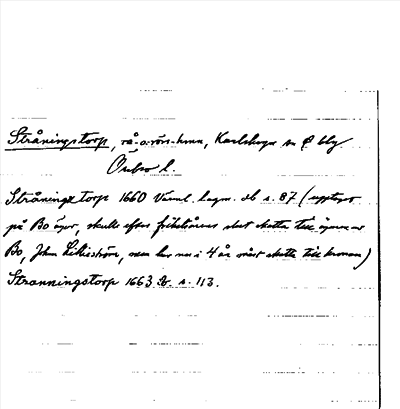 Stråningstorp, rå-o.rörs-humm, Karlskoga sn Ö bbg
Örebro l.
Stråningz torp 1660 Värml. lagm. db s. 87 (upptaget
på Bo ägor, skulle efter frihetsårens slut skatta till ägaren av
Bo, John Lilliesköm, men har nu i 4 år måst skatta till kronan)
Stranningstorp 1663 Ib. s. 113.